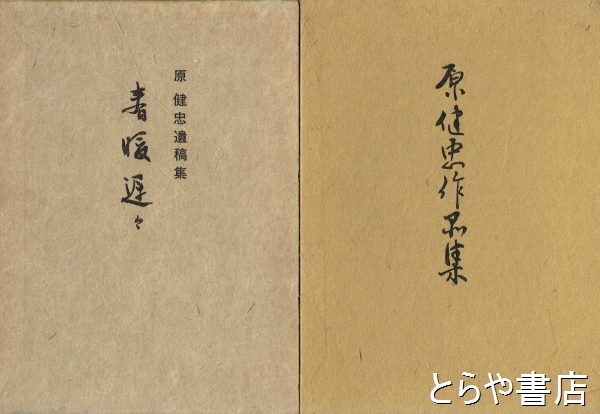 原健忠遺稿集
春暖遅々
原健忠作品集
とらや書店